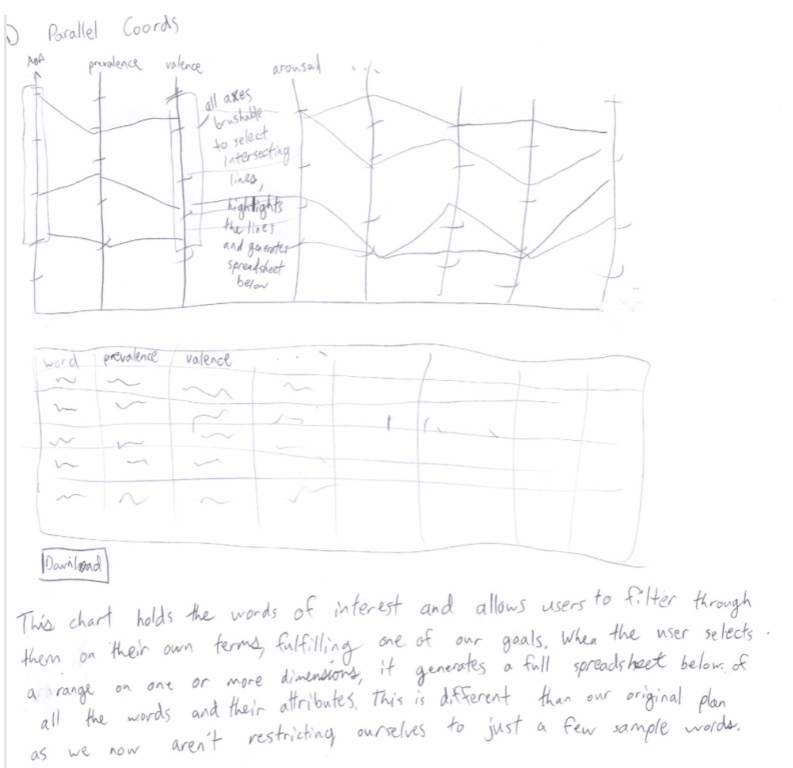 1) Parallel Coords
AoA prevalence valence arousal ...
all axes
brushable
to select
intersecting
lines,
highlights
the lines
and generates
spreadsheet
below
word prevalence valence ...
Download
This chart holds the words of interest and allows users to filter through
them on their own terms, fulfilling one of our goals. When the user selects
a range on one or more dimensions, it generates a full spreadsheet below of
all the words and their attributes. This is different than our original plan
as we now aren't restricting ourselves to just a few sample words.